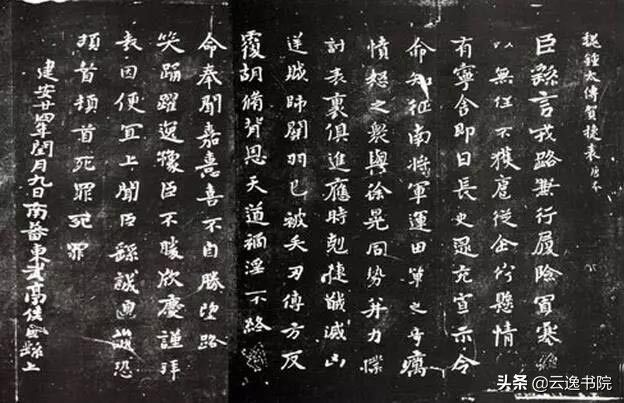 魏鍾太傅賀捷表唐本
臣繇言戎路兼行履險冒寒臣
以無任不獲扈從企佇懸情
有寧舍即日長史逯充宣示令
命知征南將軍運田單之奇厲
憤怒之衆與徐晃同勢并力撲
討表裏俱進應時剋捷馘滅凶
逆賊帥關羽已被矢刃傅方反
覆胡脩背恩天道禍淫不終
命奉聞嘉憙喜不自勝望路
笑踊躍逸豫臣不勝欣慶謹拜
表因便宜上聞臣繇誠惶誠恐
頓首頓首死罪死罪
建安廿四年閏月九日南蕃東武亭侯臣繇上
头条 @云逸书院